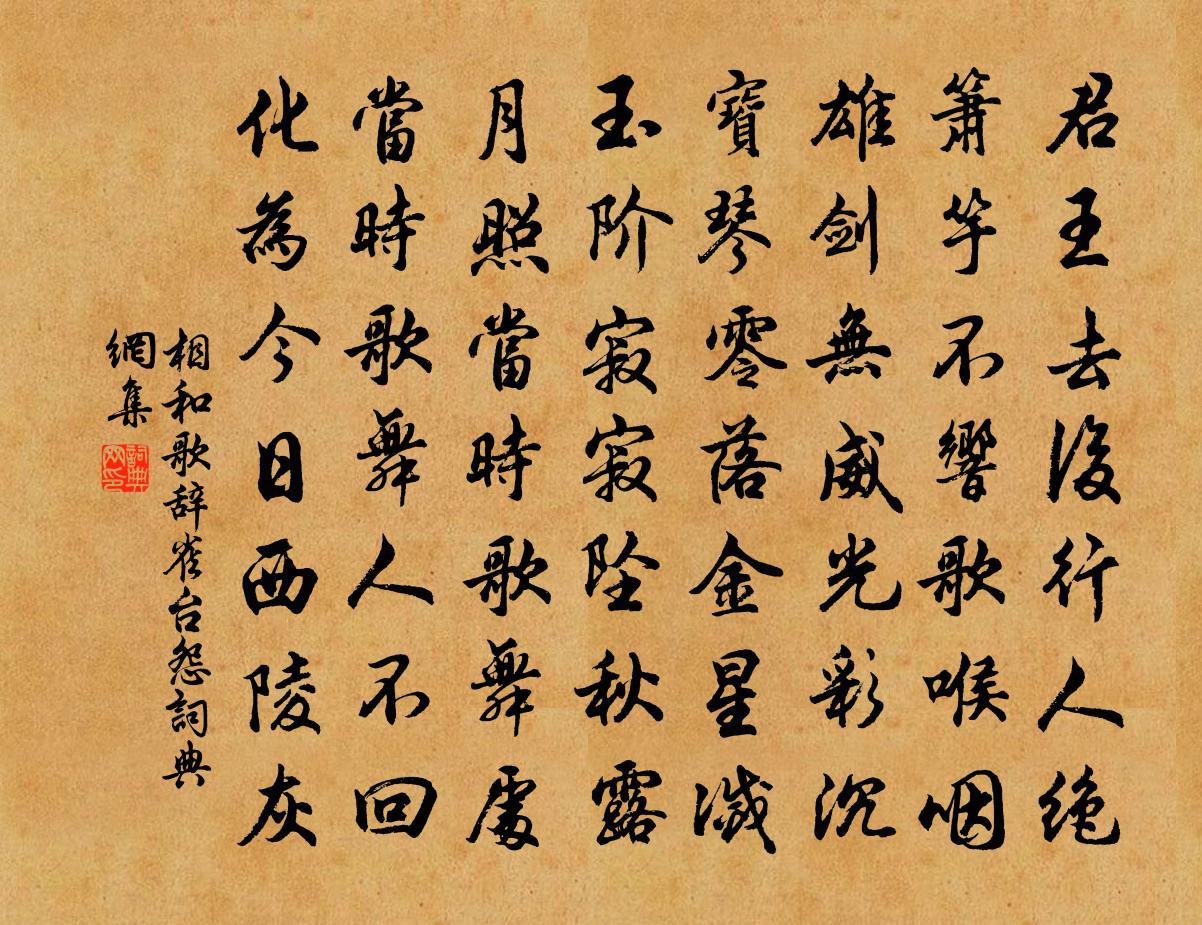 君王去後行人绝
簫竽不響歌喉咽
雄剑無威光彩沉
寶琴零落金星滅
玉阶寂寂坠秋露
月照當時歌舞處
當時歌舞人不回
化為今日西陵灰
相和歌辞雀台怨詞典
網集
詞典
网印